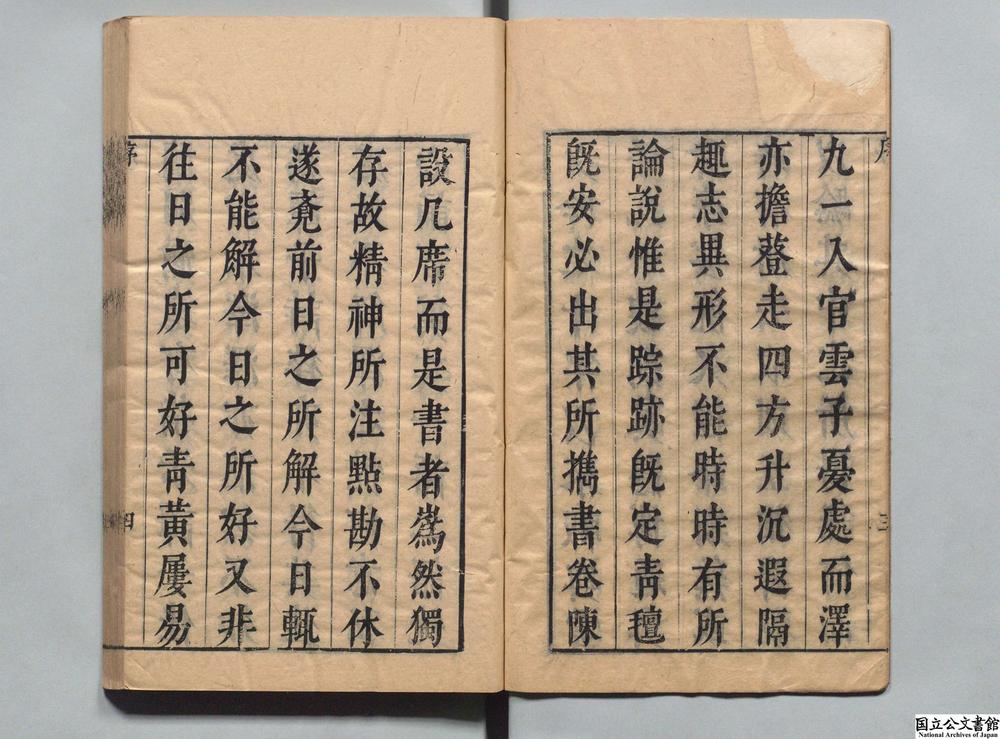 九一入官雲子憂處而澤
亦擔簦走四方升沉遐隔
趣志異形不能時時有所
論說惟是踪跡既定青氊
既安必出其所擕書卷陳
序
三
設几席而是書者嶲然獨
存故精神所注點勘不休
遂竟前日之所解今日輒
不能解今日之所好又非
往日之所可好青黃屢易
序
四
国立公文書館
National Archives of Japan